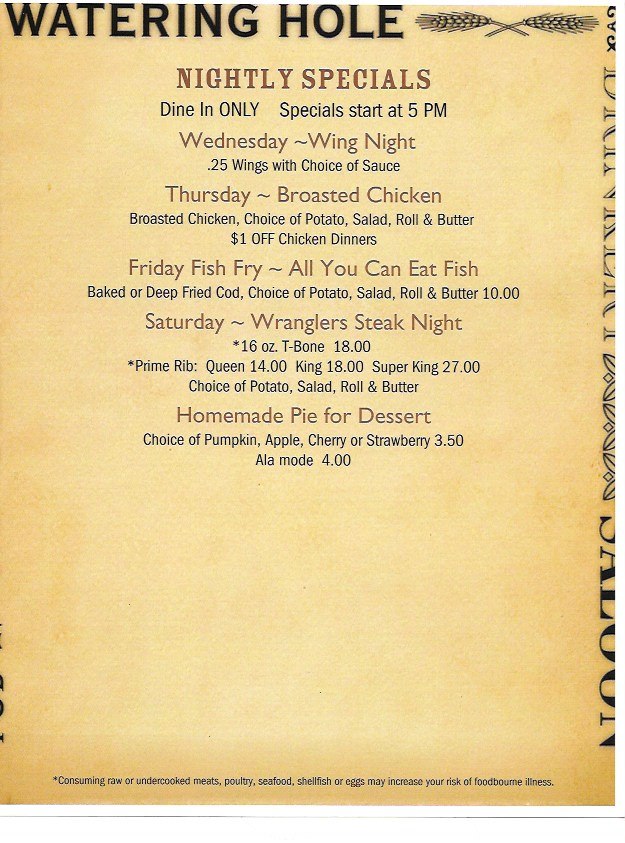 WATERING HOLE
NIGHTLY SPECIALS
Dine In ONLY Specials start at 5 PM
Wednesday ~Wing Night
.25 Wings with Choice of Sauce
Thursday ~ Broasted Chicken
Broasted Chicken, Choice of Potato, Salad, Roll & Butter
$1 OFF Chicken Dinners
Friday Fish Fry ~ All You Can Eat Fish
Baked or Deep Fried Cod, Choice of Potato, Salad, Roll & Butter 10.00
Saturday ~ Wranglers Steak Night
*16 oz. T-Bone 18.00
*Prime Rib: Queen 14.00 King 18.00 Super King 27.00
Choice of Potato, Salad, Roll & Butter
Homemade Pie for Dessert
Choice of Pumpkin, Apple, Cherry or Strawberry 3.50
Ala mode 4.00
SALOON
*Consuming raw or undercooked meats, poultry, seafood, shellfish or eggs may increase your risk of foodbourne illness.